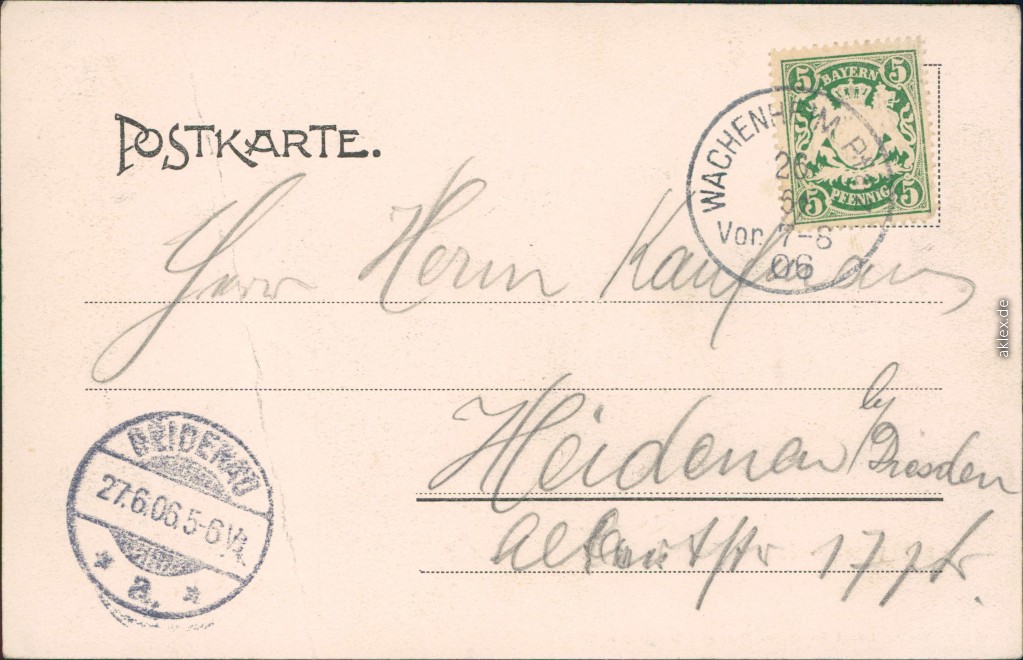 POSTKARTE.
5 BAYERN 5
5 PFENNIG 5
WACHENHEIM
26
Vor. 7-8
06
Herr Herm Kaufmann
Heidenau b/ Dresden
17
HEIDENAU
27.6.06.5-6
* a. *
aklex.de